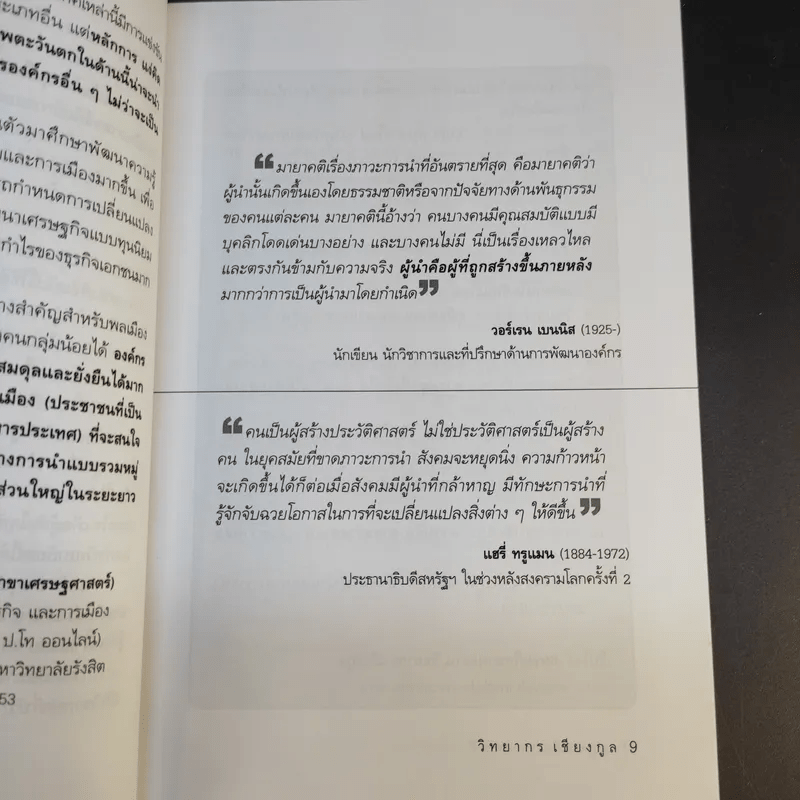 ประเภทอื่น แต่หลักการ
รองค์กรอื่น ๆ ไม่ว่าจะเป็น
ตัวมาศึกษาพัฒนาความรู้
และการเมืองมากขึ้น เพื่อ
ถกำหนดการเปลี่ยนแปลง
นาเศรษฐกิจแบบทุนนิยม
กำไรของธุรกิจเอกชนมาก
างสำคัญสำหรับพลเมือง
คนกลุ่มน้อยได้ องค์กร
สมดุลและยั่งยืนได้มาก
เมือง (ประชาชนที่เป็น
ารประเทศ) ที่จะสนใจ
างการนำแบบรวมหมู่
ส่วนใหญ่ในระยะยาว
าขาเศรษฐศาสตร์)
กิจ และการเมือง
ป.โท ออนไลน์)
หาวิทยาลัยรังสิต
53
❝มายาคติเรื่องภาวะการนำที่อันตรายที่สุด คือมายาคติว่า
ผู้นำนั้นเกิดขึ้นเองโดยธรรมชาติหรือจากปัจจัยทางด้านพันธุกรรม
ของคนแต่ละคน มายาคตินี้อ้างว่า คนบางคนมีคุณสมบัติแบบมี
บุคลิกโดดเด่นบางอย่าง และบางคนไม่มี นี่เป็นเรื่องเหลวไหล
และตรงกันข้ามกับความจริง ผู้นำคือผู้ที่ถูกสร้างขึ้นภายหลัง
มากกว่าการเป็นผู้นำมาโดยกำเนิด❞
วอร์เรน เบนนิส (1925-)
นักเขียน นักวิชาการและที่ปรึกษาด้านการพัฒนาองค์กร
❝คนเป็นผู้สร้างประวัติศาสตร์ ไม่ใช่ประวัติศาสตร์เป็นผู้สร้าง
คน ในยุคสมัยที่ขาดภาวะการนำ สังคมจะหยุดนิ่ง ความก้าวหน้า
จะเกิดขึ้นได้ก็ต่อเมื่อสังคมมีผู้นำที่กล้าหาญ มีทักษะการนำที่
รู้จักจับฉวยโอกาสในการที่จะเปลี่ยนแปลงสิ่งต่าง ๆ ให้ดีขึ้น❞
แฮรี่ ทรูแมน (1884-1972)
ประธานาธิบดีสหรัฐฯ ในช่วงหลังสงครามโลกครั้งที่ 2
วิทยากร เชียงกูล 9